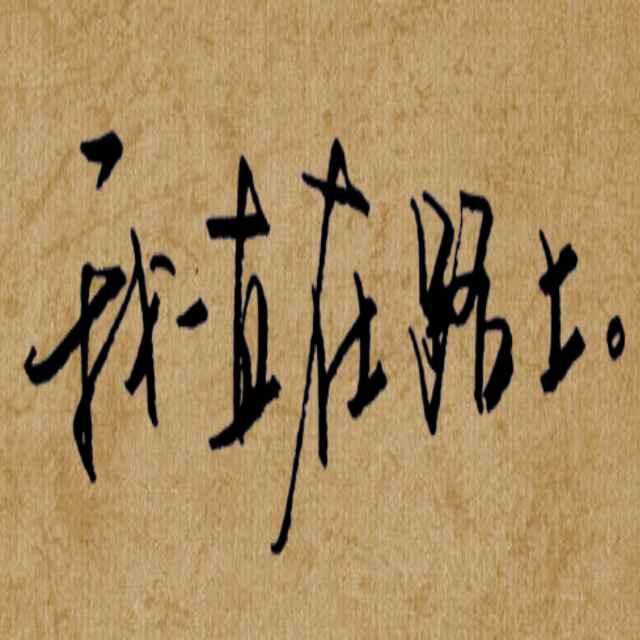 我一直在路上。